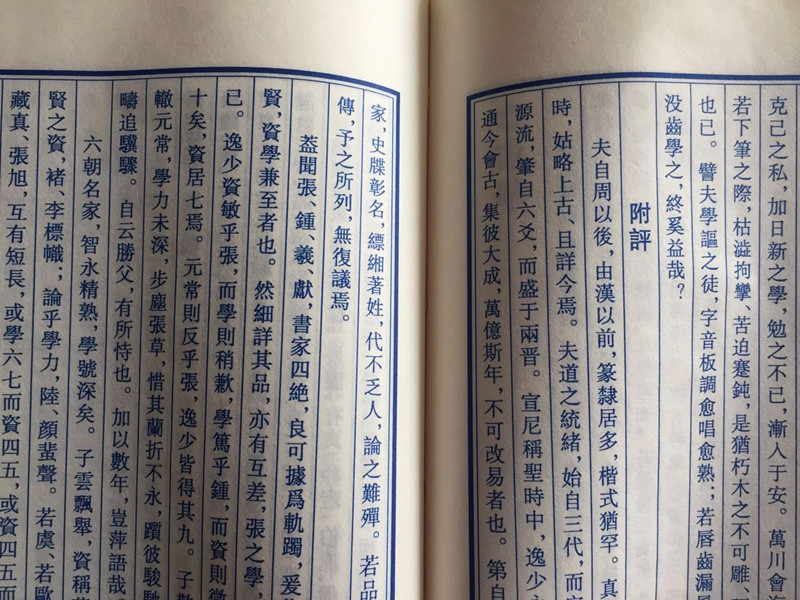 克己之私，加日新之學，勉之不已，漸入于安。萬川會海
若下筆之際，枯澁拘攣、苦迫蹇鈍，是猶朽木之不可雕、
也已。譬夫學謳之徒，字音板調愈唱愈熟；若唇齒漏
没齒學之，終奚益哉？
附評
夫自周以後，由漢以前，篆隸居多，楷式猶罕。真
時，姑略上古、且詳今焉。夫道之統緒，始自三代，而
源流，肇自六爻，而盛于兩晉。宣尼稱聖時中，逸少
通今會古，集彼大成，萬億斯年，不可改易者也。第自
家，史牒彰名，縹緗著姓，代不乏人，論之難殫。若品
傳，予之所列，無復議焉。
蓋聞張、鍾、羲、獻，書家四絶，良可據爲軌躅，爰
賢，資學兼至者也。然細詳其品，亦有互差，張之學，
已。逸少資敏乎張，而學則稍歉，學篤乎鍾，而資則
十矣，資居七焉。元常則反乎張，逸少皆得其九。子
轍元常，學力未深，步塵張草，惜其蘭折不永，躓彼駿
疇追驥騄。自云勝父，有所恃也。加以數年，豈萍語哉
六朝名家，智永精熟，學號深矣。子雲飄舉，資稱
賢之資，褚、李標幟；論乎學力，陸、顔蜚聲。若虞、若歐
藏真、張旭，互有短長，或學六七而資四五，或資四五而